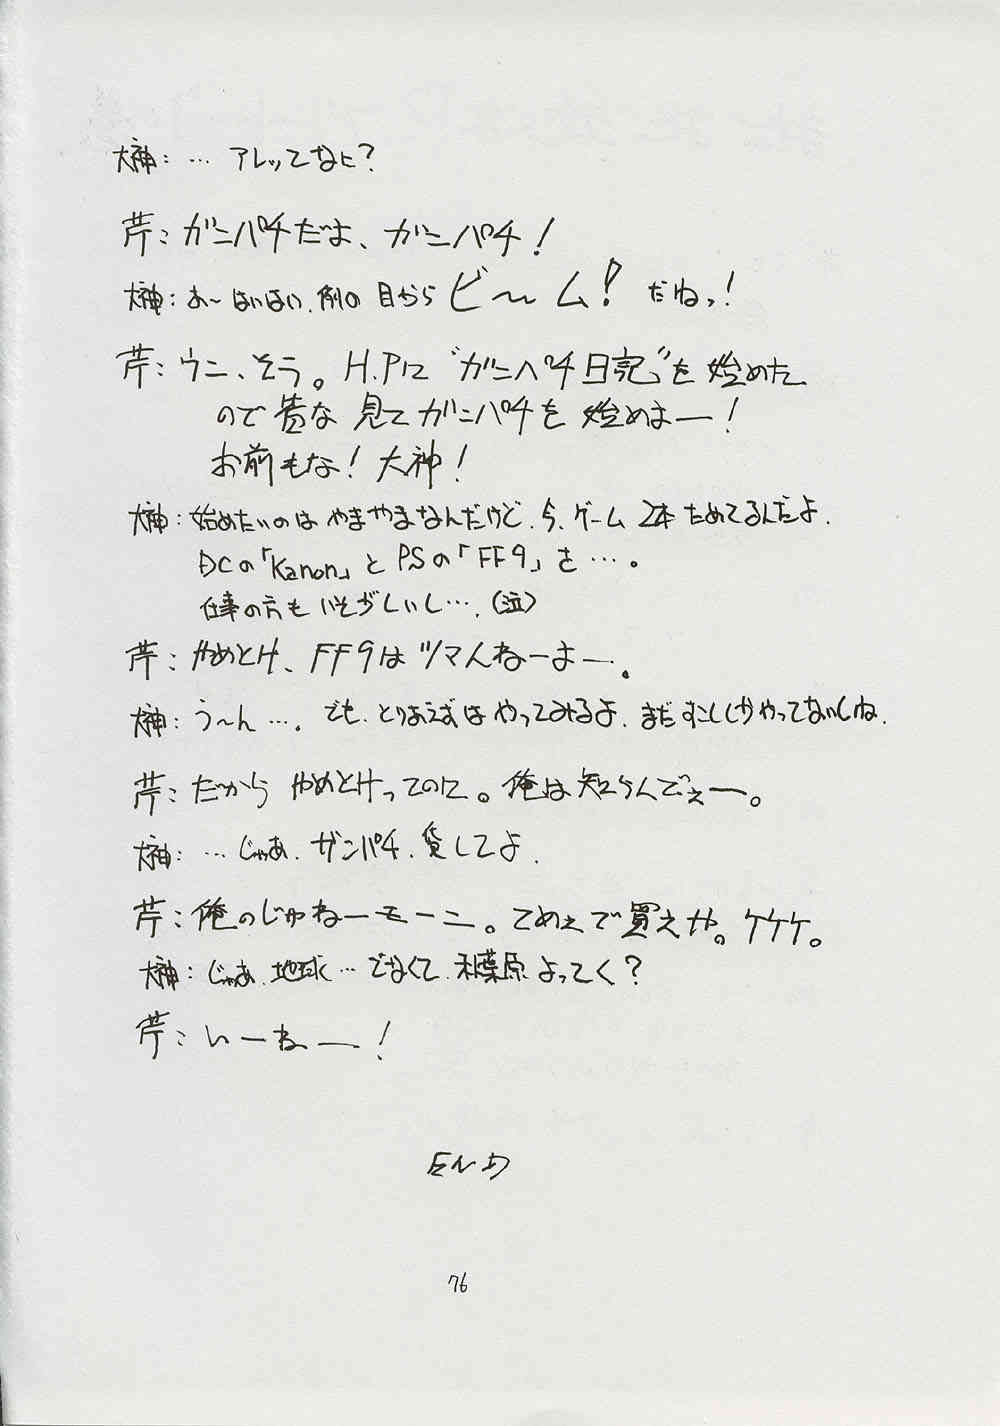 大神：… アレッてなに？
芹：ガンパチだよ、ガンパチ！
大神：あ〜はいはい、例の 目から ビ〜ム！ だねっ！
芹：ウン、そう。H.Pに “ガンパチ日記”を 始めた
ので 皆な 見て ガンパチを 始めよー！
お前もな！大神！
大神：始めたいのは やまやまなんだけど、今、ゲーム 2本 ためてるんだよ、
DCの「Kanon」と PSの「FF9」を …。
仕事の方も いそがしいし…、（泣）
芹：やめとけ、FF9は ツマんねーよー。
大神：う〜ん …。でも、とりあえずは やってみるよ、まだ すこし しか やってないしね、
芹：だから やめとけってのに。俺は 知らんでぇー。
大神：… じゃあ、ガンパチ、貸してよ、
芹：俺のじゃねーモーン。てめぇで 買えや。ケケケ。
大神：じゃあ、地球 … でなくて、秋葉原 よってく？
芹：いーねー！
END
76